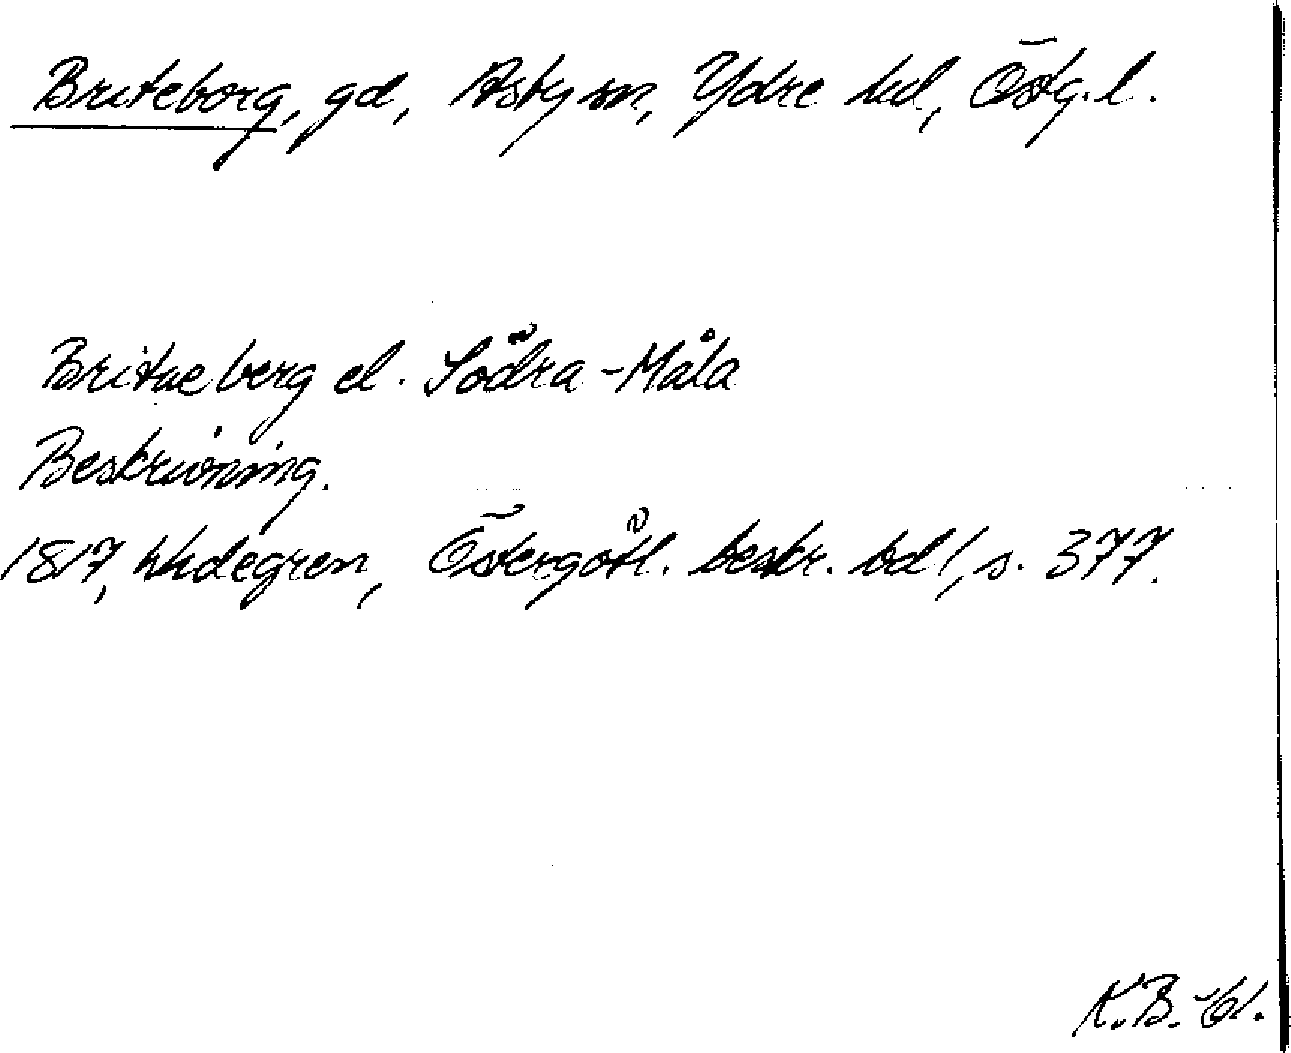 Briteborg, gd, Asby sn, Ydre hd, Östg. l.
Britae berg el. Södra-Måla
Beskrivning.
1817, Widegren, Östergötl. beskr. bd 1, s. 377.
K.B.-61.